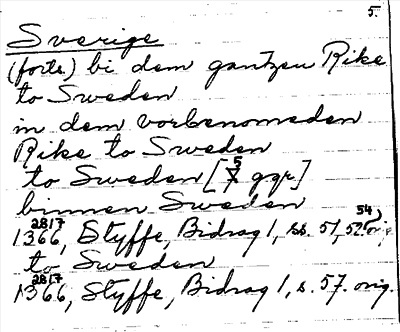 5.
Sverige
(forts.) bi dem gantzen Rike
to Sweden
in dem vorbenomeden
Rike to Sweden
to Sweden [5 ggr.]
binnen Sweden
1366, 28/7, Styffe, Bidrag 1, ss. 51, 52, 54, orig.
to Sweden
1366, 28/7, Styffe, Bidrag 1, s. 57. orig.